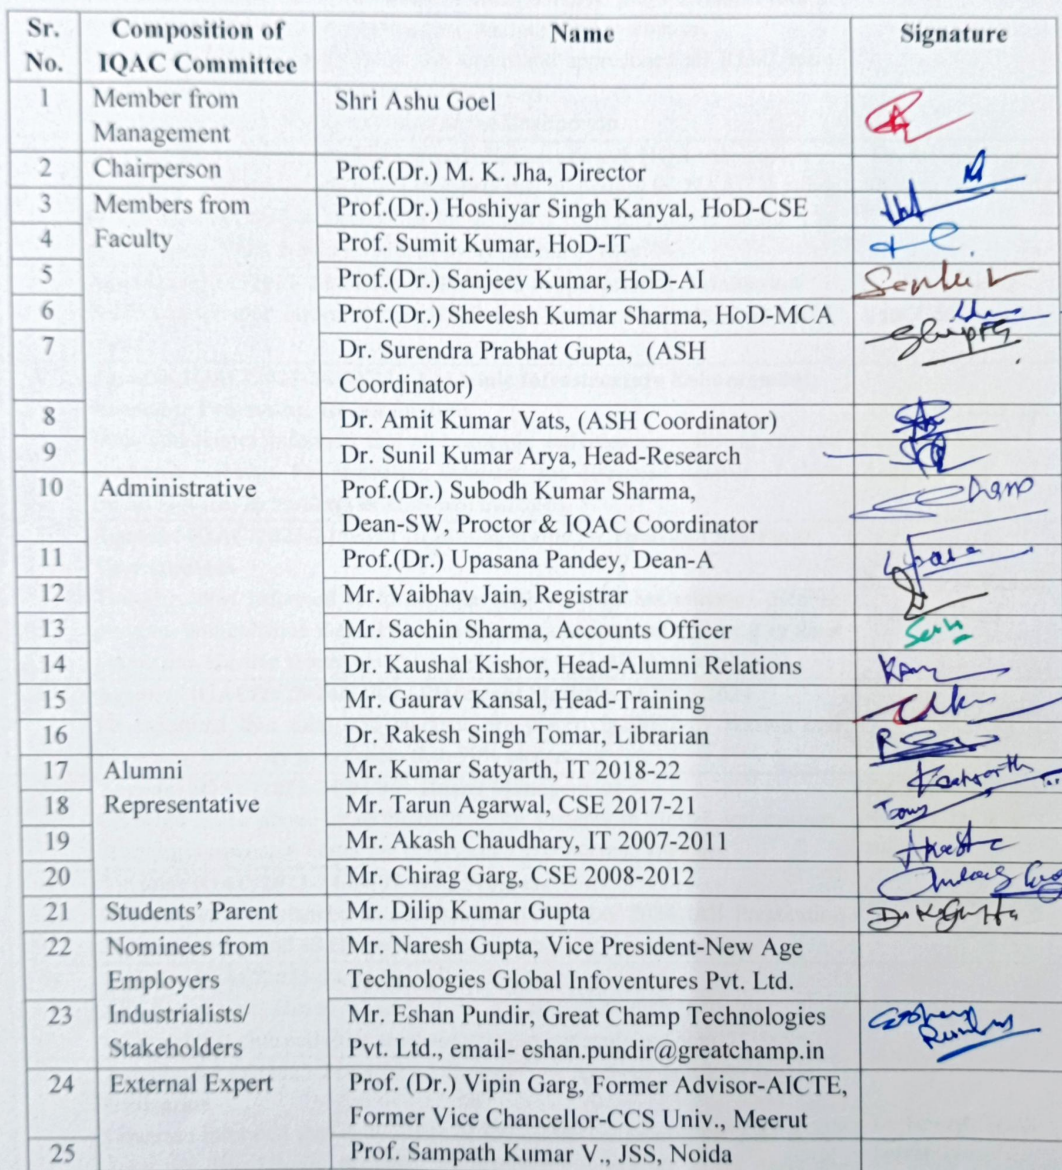 Sr. No. Composition of IQAC Committee Name Signature
1 Member from Management Shri Ashu Goel
2 Chairperson Prof.(Dr.) M. K. Jha, Director
3 Members from Faculty Prof.(Dr.) Hoshiyar Singh Kanyal, HoD-CSE
4 Prof. Sumit Kumar, HoD-IT
5 Prof.(Dr.) Sanjeev Kumar, HoD-AI
6 Prof.(Dr.) Sheelesh Kumar Sharma, HoD-MCA
7 Dr. Surendra Prabhat Gupta, (ASH
Coordinator)
8 Dr. Amit Kumar Vats, (ASH Coordinator)
9 Dr. Sunil Kumar Arya, Head-Research
10 Administrative Prof.(Dr.) Subodh Kumar Sharma,
Dean-SW, Proctor & IQAC Coordinator
11 Prof.(Dr.) Upasana Pandey, Dean-A
12 Mr. Vaibhav Jain, Registrar
13 Mr. Sachin Sharma, Accounts Officer
14 Dr. Kaushal Kishor, Head-Alumni Relations
15 Mr. Gaurav Kansal, Head-Training
16 Dr. Rakesh Singh Tomar, Librarian
17 Alumni Mr. Kumar Satyarth, IT 2018-22
18 Representative Mr. Tarun Agarwal, CSE 2017-21
19 Mr. Akash Chaudhary, IT 2007-2011
20 Mr. Chirag Garg, CSE 2008-2012
21 Students' Parent Mr. Dilip Kumar Gupta
22 Nominees from Mr. Naresh Gupta, Vice President-New Age
Employers Technologies Global Infoventures Pvt. Ltd.
23 Industrialists/ Mr. Eshan Pundir, Great Champ Technologies
Stakeholders Pvt. Ltd., email- eshan.pundir@greatchamp.in
24 External Expert Prof. (Dr.) Vipin Garg, Former Advisor-AICTE,
Former Vice Chancellor-CCS Univ., Meerut
25 Prof. Sampath Kumar V., JSS, Noida